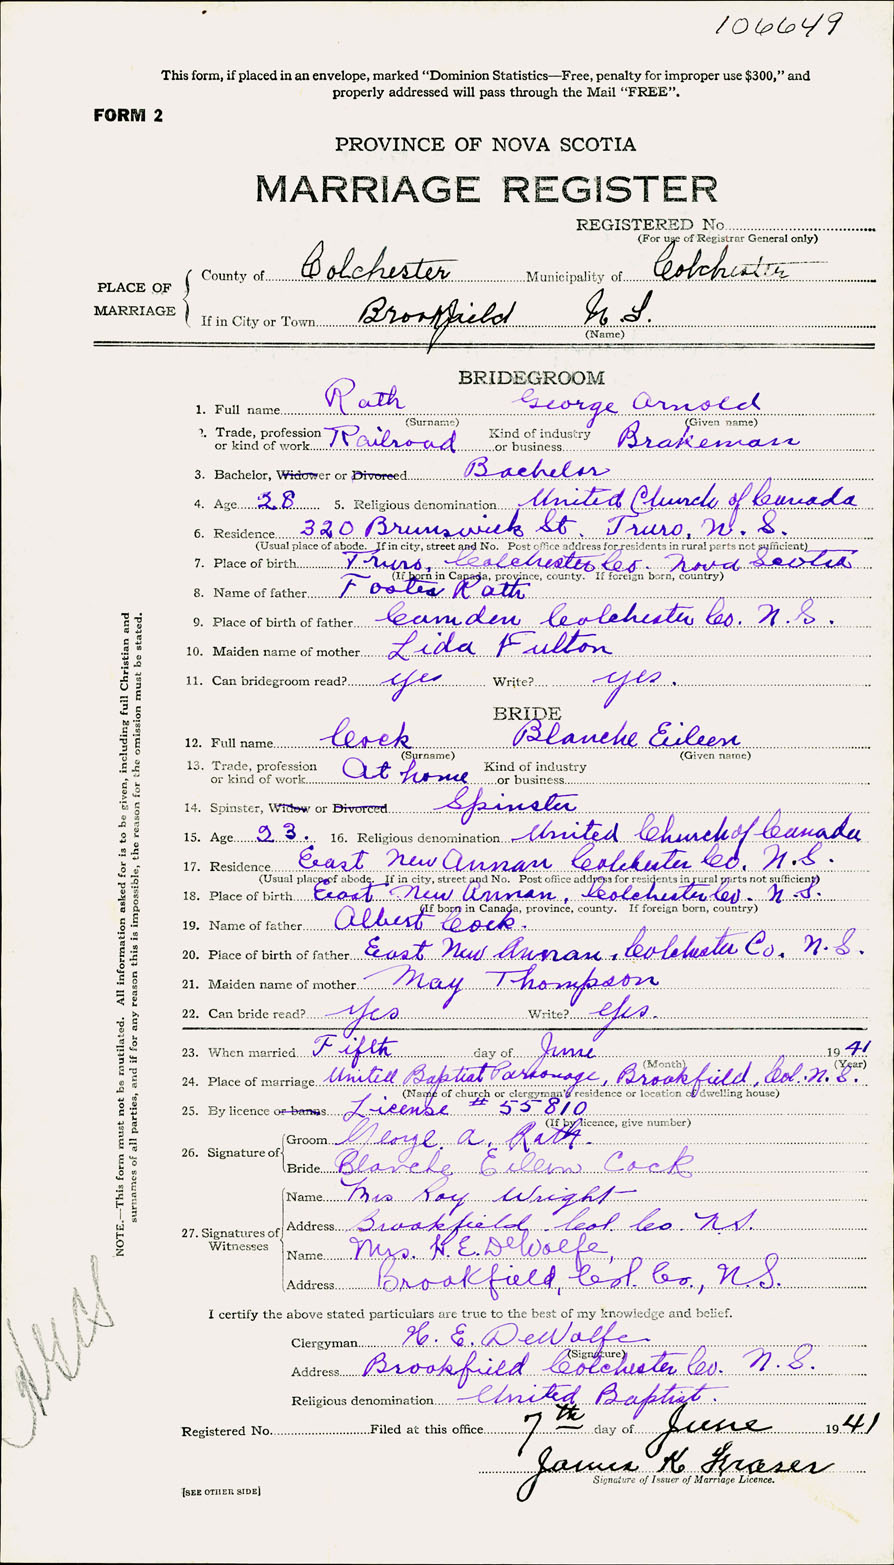 106649
This form, if placed in an envelope, marked "Dominion Statistics—Free, penalty for improper use $300," and
properly addressed will pass through the Mail "FREE".
FORM 2
PROVINCE OF NOVA SCOTIA
MARRIAGE REGISTER
REGISTERED No.
(For use of Registrar General only)
PLACE OF MARRIAGE
County of Colchester Municipality of Colchester
If in City or Town Brookfield N.S.
(Name)
BRIDEGROOM
1. Full name Rath George Arnold
(Surname) (Given name)
2. Trade, profession or kind of work Railroad Kind of industry or business Brakeman
3. Bachelor, Widower or Divorced Bachelor
4. Age 28 5. Religious denomination United Church of Canada
6. Residence 320 Brunswick St. Truro, N.S.
(Usual place of abode. If in city, street and No. Post office address for residents in rural parts not sufficient)
7. Place of birth Truro, Colchester Co. Nova Scotia
(If born in Canada, province, county. If foreign born, country)
8. Name of father Foster Rath
9. Place of birth of father Camden Colchester Co. N.S.
10. Maiden name of mother Lida Fulton
11. Can bridegroom read? yes Write? yes.
BRIDE
12. Full name Cock Blanche Eileen
(Surname) (Given name)
13. Trade, profession or kind of work At home Kind of industry or business
14. Spinster, Widow or Divorced Spinster
15. Age 23. 16. Religious denomination United Church of Canada
17. Residence East New Annan Colchester Co. N.S.
(Usual place of abode. If in city, street and No. Post office address for residents in rural parts not sufficient)
18. Place of birth East New Annan, Colchester Co. N.S.
(If born in Canada, province, county. If foreign born, country)
19. Name of father Albert Cock.
20. Place of birth of father East New Annan, Colchester Co. N.S.
21. Maiden name of mother May Thompson
22. Can bride read? Yes Write? Yes.
23. When married Fifth day of June 1941
(Month) (Year)
24. Place of marriage United Baptist Parsonage, Brookfield, Col. N.S.
(Name of church or clergyman's residence or location of dwelling house)
25. By licence or banns License # 55810
(If by licence, give number)
26. Signature of
Groom George A. Rath.
Bride Blanche Eileen Cock
27. Signatures of Witnesses
Name Mrs Roy Wright
Address Brookfield Col. Co. N.S.
Name Mrs. H. E. DeWolfe,
Address Brookfield, Col. Co., N.S.
I certify the above stated particulars are true to the best of my knowledge and belief.
Clergyman H. E. DeWolfe
(Signature)
Address Brookfield Colchester Co. N.S.
Religious denomination United Baptist.
Registered No. Filed at this office 7th day of June 1941
James K Fraser
Signature of Issuer of Marriage Licence.
[SEE OTHER SIDE]
NOTE.—This form must not be mutilated. All information asked for is to be given, including full Christian and
surnames of all parties, and if for any reason this is impossible, the reason for the omission must be stated.